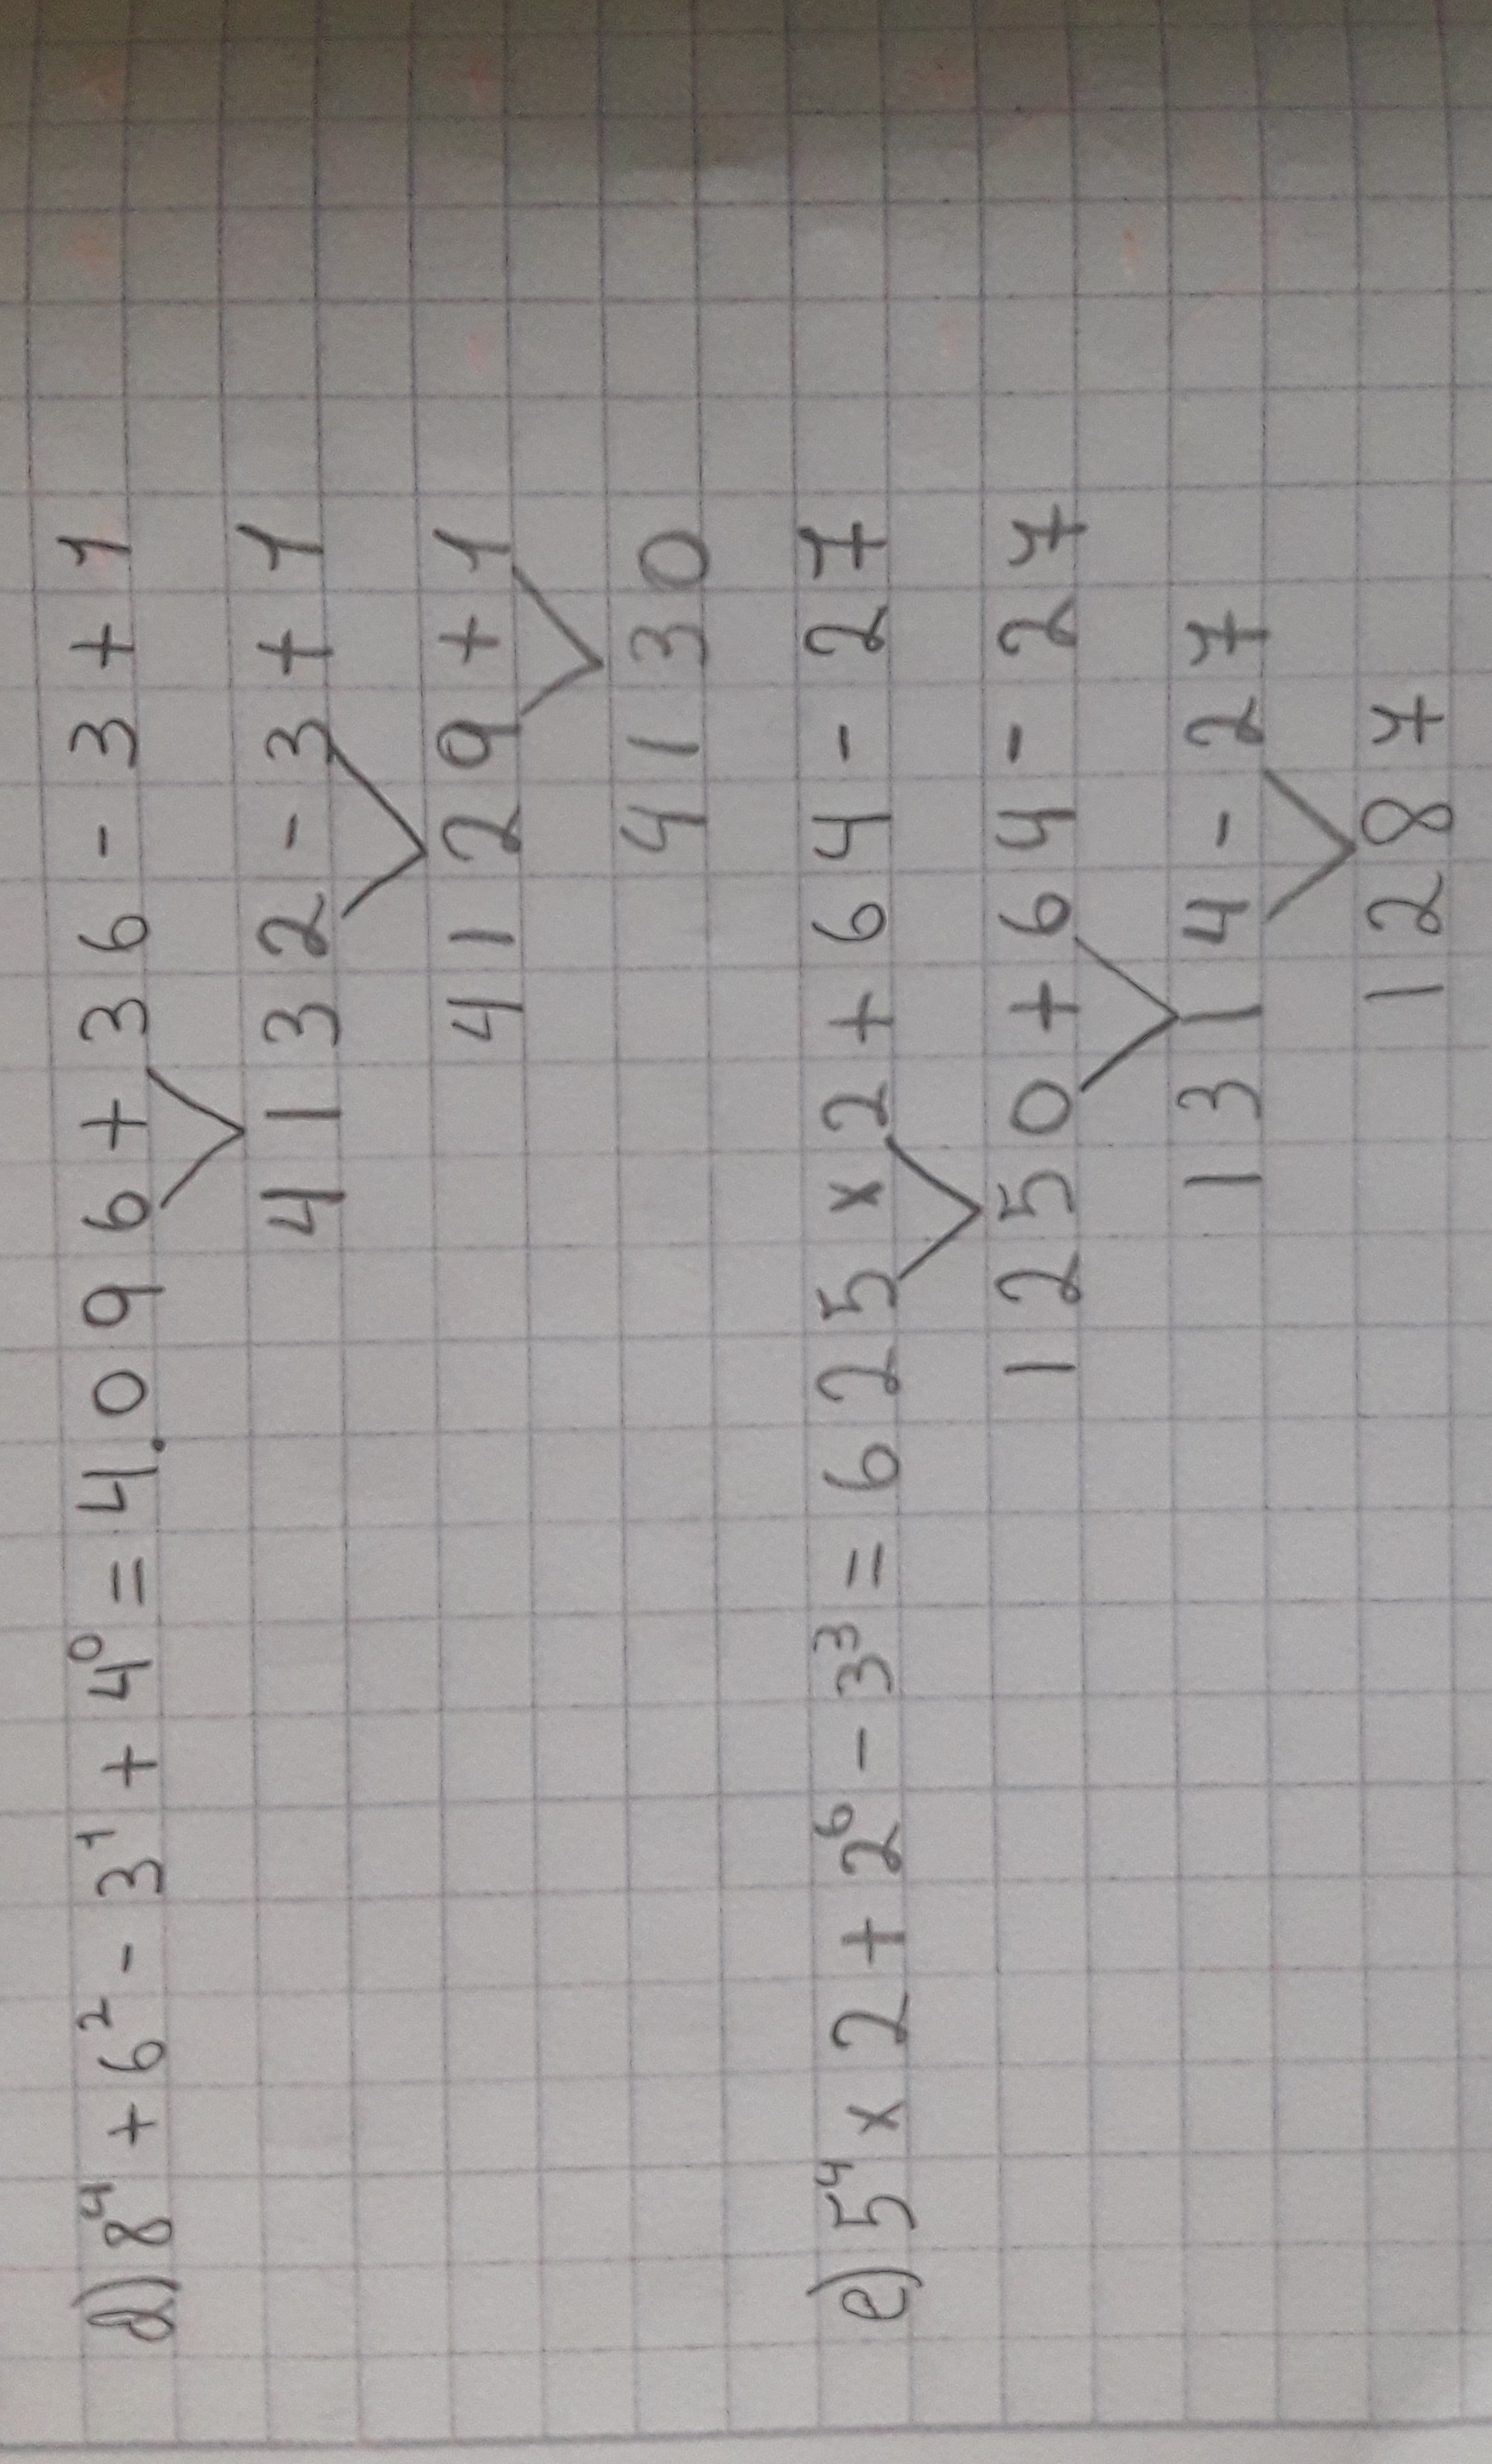 d) 8⁴ + 6² - 3¹ + 4⁰ = 4.096 + 36 - 3 + 1
4132 - 3 + 1
4129 + 1
4130
e) 5⁴ x 2 + 2⁶ - 3³ = 625 x 2 + 64 - 27
1250 + 64 - 27
1314 - 27
1287